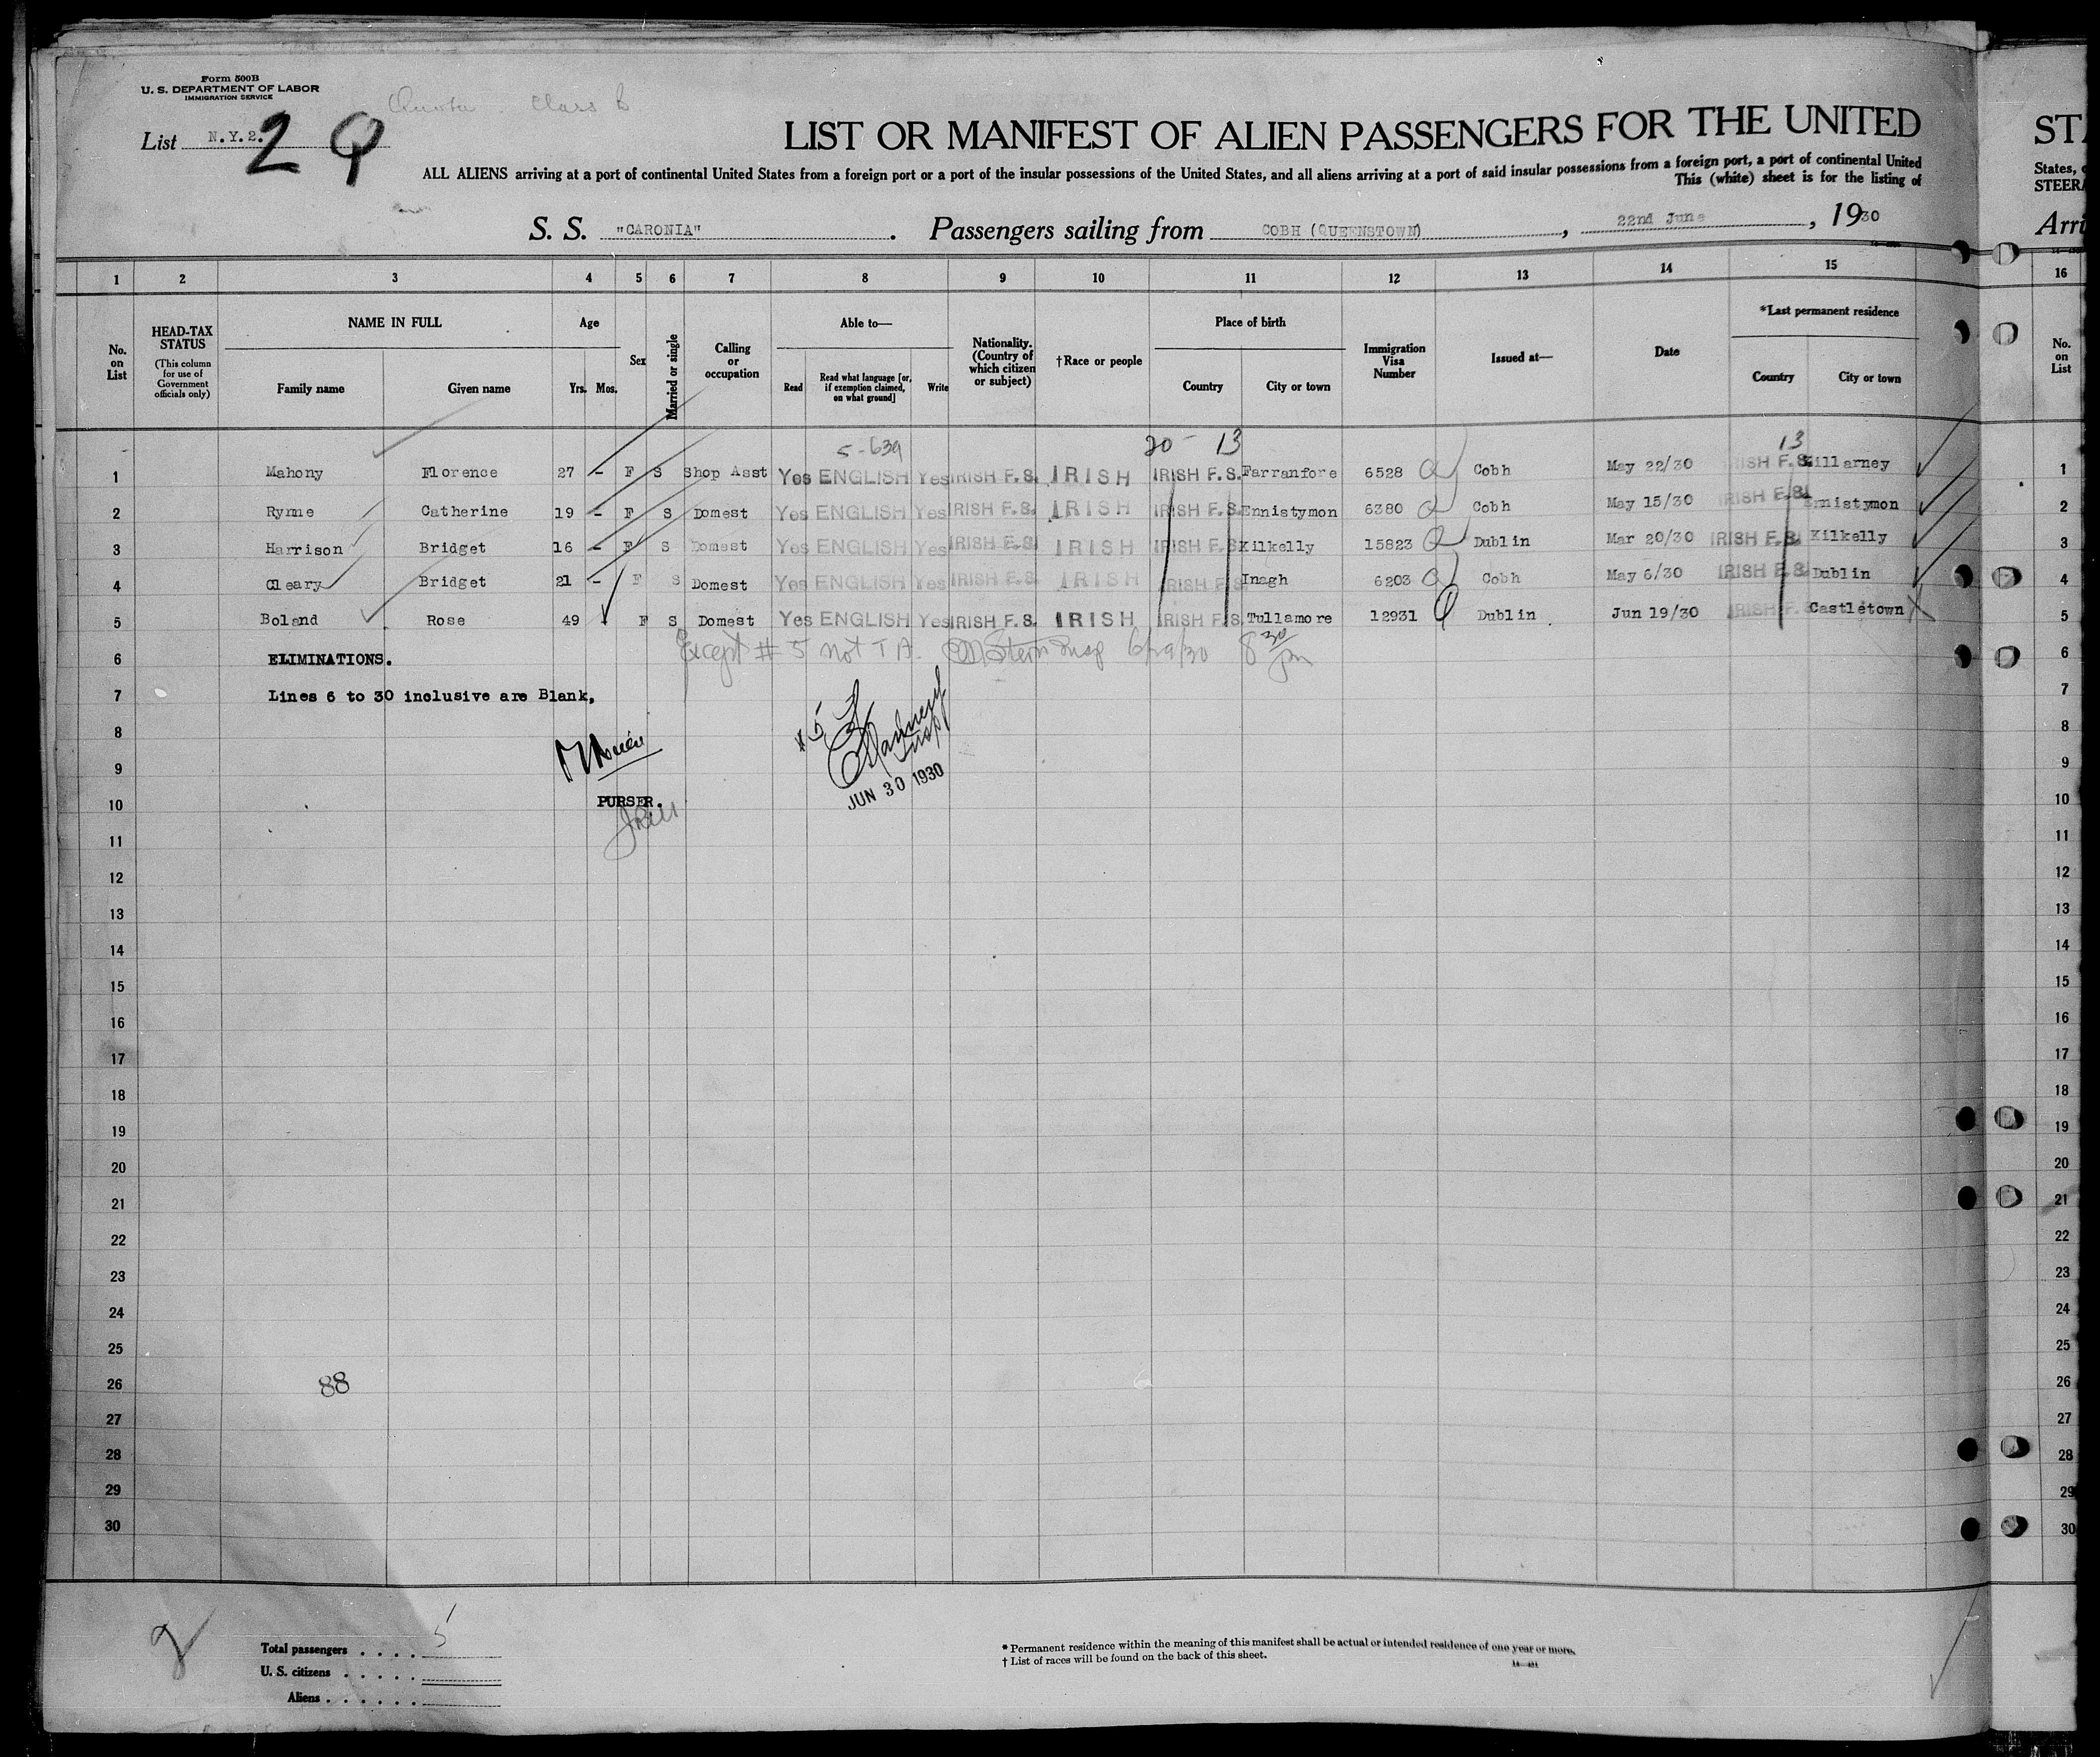 Form 500B
U. S. DEPARTMENT OF LABOR
IMMIGRATION SERVICE
Quota Class B
List N.Y.2. 2 Q
LIST OR MANIFEST OF ALIEN PASSENGERS FOR THE UNITED
ST
ALL ALIENS arriving at a port of continental United States from a foreign port or a port of the insular possessions of the United States, and all aliens arriving at a port of said insular possessions from a foreign port, a port of continental United
States,
This (white) sheet is for the listing of
STEER
S. S. "CARONIA" . Passengers sailing from COBH (QUEENSTOWN) , 22nd June , 1930
Arri
1 2 3 4 5 6 7 8 9 10 11 12 13 14 15 16
No. on List
HEAD-TAX STATUS (This column for use of Government officials only)
NAME IN FULL
Family name Given name
Age
Yrs. Mos.
Sex
Married or single
Calling or occupation
Able to—
Read Read what language [or, if exemption claimed, on what ground] Write
Nationality. (Country of which citizen or subject)
†Race or people
Place of birth
Country City or town
Immigration Visa Number
Issued at—
Date
*Last permanent residence
Country City or town
No. on List
5-639 20 - 13 13
1 Mahony Florence 27 - F S Shop Asst Yes ENGLISH Yes IRISH F.S. IRISH IRISH F.S. Farranfore 6528 Q Cobh May 22/30 IRISH F.S. Killarney 1
2 Rynne Catherine 19 - F S Domest Yes ENGLISH Yes IRISH F.S. IRISH IRISH F.S. Ennistymon 6380 Q Cobh May 15/30 IRISH F.S. Ennistymon 2
3 Harrison Bridget 16 - F S Domest Yes ENGLISH Yes IRISH F.S. IRISH IRISH F.S. Kilkelly 15823 Q Dublin Mar 20/30 IRISH F.S. Kilkelly 3
4 Cleary Bridget 21 - F S Domest Yes ENGLISH Yes IRISH F.S. IRISH IRISH F.S. Inagh 6203 Q Cobh May 6/30 IRISH F.S. Dublin 4
5 Boland Rose 49 F S Domest Yes ENGLISH Yes IRISH F.S. IRISH IRISH F.S. Tullamore 12931 Q Dublin Jun 19/30 IRISH F.S. Castletown X 5
6 ELIMINATIONS. Except # 5 not T A. Stern Insp 6/29/30 8 30 pm 6
7 Lines 6 to 30 inclusive are Blank, 7
8 # 5 Insp 8
9 9
10 PURSER. JUN 30 1930 10
11 11
12 12
13 13
14 14
15 15
16 16
17 17
18 18
19 19
20 20
21 21
22 22
23 23
24 24
25 25
26 88 26
27 27
28 28
29 29
30 30
Total passengers . . . . 5
U. S. citizens . . . . .
Aliens . . . . . .
* Permanent residence within the meaning of this manifest shall be actual or intended residence of one year or more.
† List of races will be found on the back of this sheet.